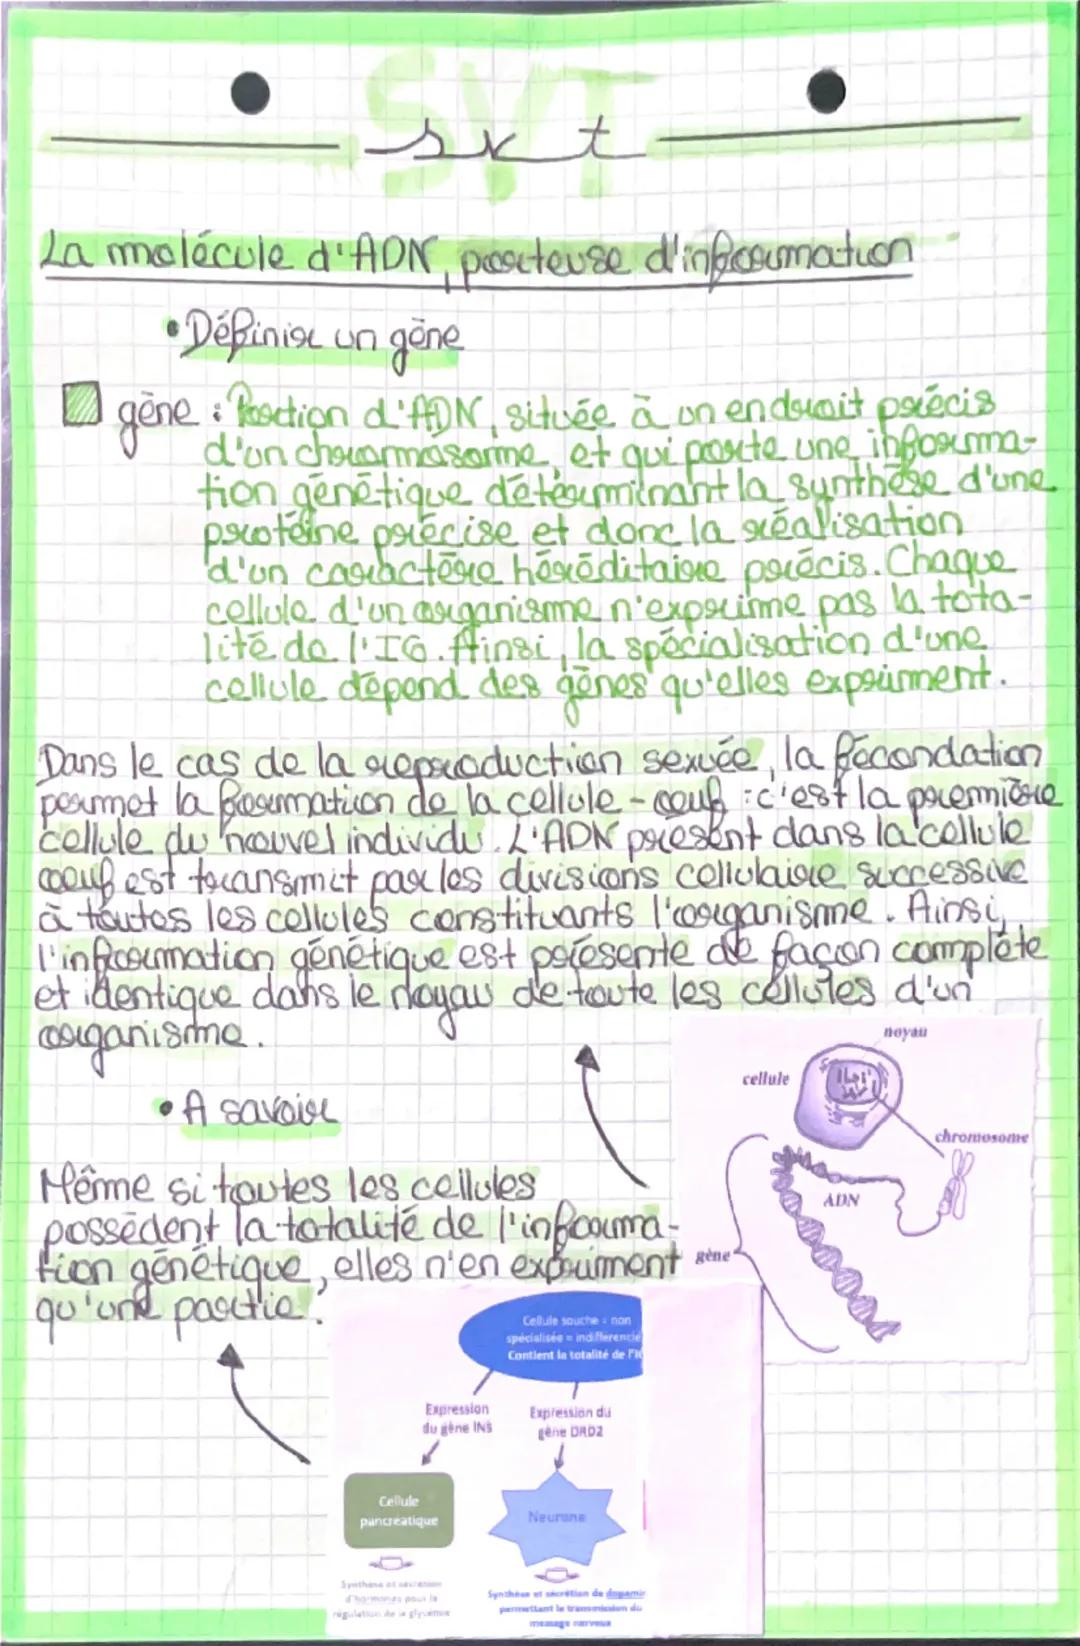 SVT
svt
La molécule d'ADN, porteuse d'information
• Définir un gène
gène : Portion d'ADN, située à un endroit précis
d'un chromosome, et qui porte une informa-
tion génétique déterminant la synthèse d'une
protéine précise et donc la réalisation
d'un caractère héréditaire précis. Chaque
cellule d'un organisme n'exprime pas la tota-
lité de l'IG. Ainsi, la spécialisation d'une
cellule dépend des gènes qu'elles expriment.
Dans le cas de la reproduction sexuée, la fécondation
permet la formation de la cellule-oeuf : c'est la première
cellule du nouvel individu. L'ADN présent dans la cellule
oeuf est transmit par les divisions cellulaire successive
à toutes les cellules constituants l'organisme. Ainsi,
l'information génétique est présente de façon complète
et identique dans le noyau de toute les cellules d'un
organisme.
noyau
cellule
chromosome
ADN
gène
• A savoir
Même si toutes les cellules
possèdent la totalité de l'informa-
tion génétique, elles n'en expriment
qu'une partie.
Cellule souche = non
spécialisée = indifférencié
Contient la totalité de l'IG
Expression
du gène INS
Expression du
gène DRD2
Cellule
pancréatique
Neurone
Synthèse et sécrétion
d'hormones pour la
régulation de la glycémie
Synthèse et sécrétion de dopamin
permettant la transmission du
message nerveux